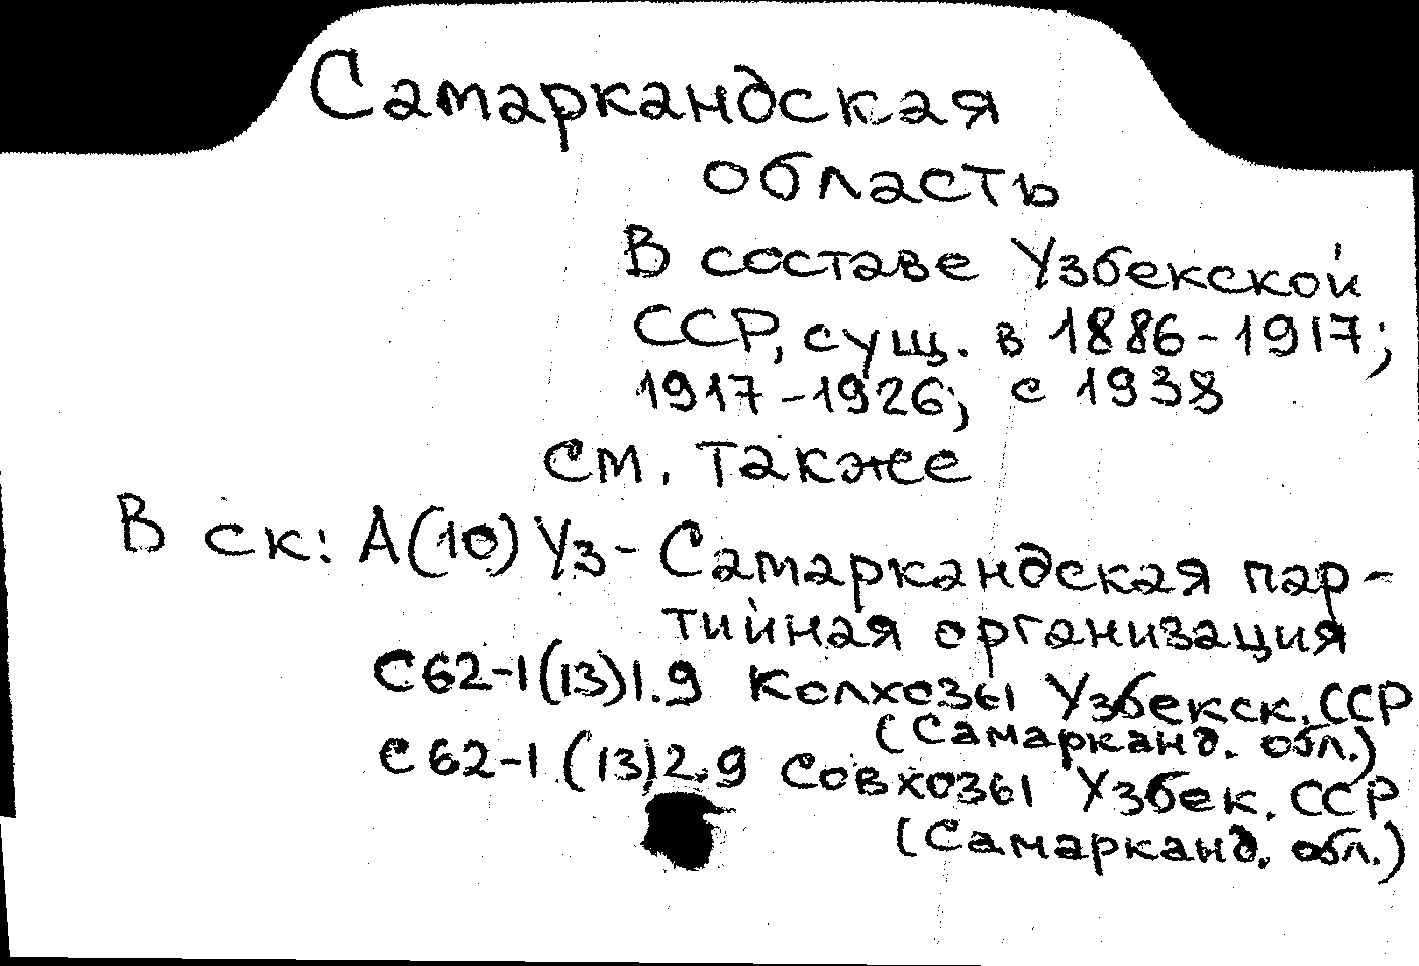 Самаркандская
область
В составе Узбекской
ССР, сущ. в 1886-1917;
1917-1926; с 1938
см. также
В ск: А(10)Уз- Самаркандская пар-
тийная организация
С62-1(13)1.9 Колхозы Узбекск. ССР
(Самарканд. обл.)
С62-1(13)2.9 Совхозы Узбек. ССР
(Самарканд. обл.)